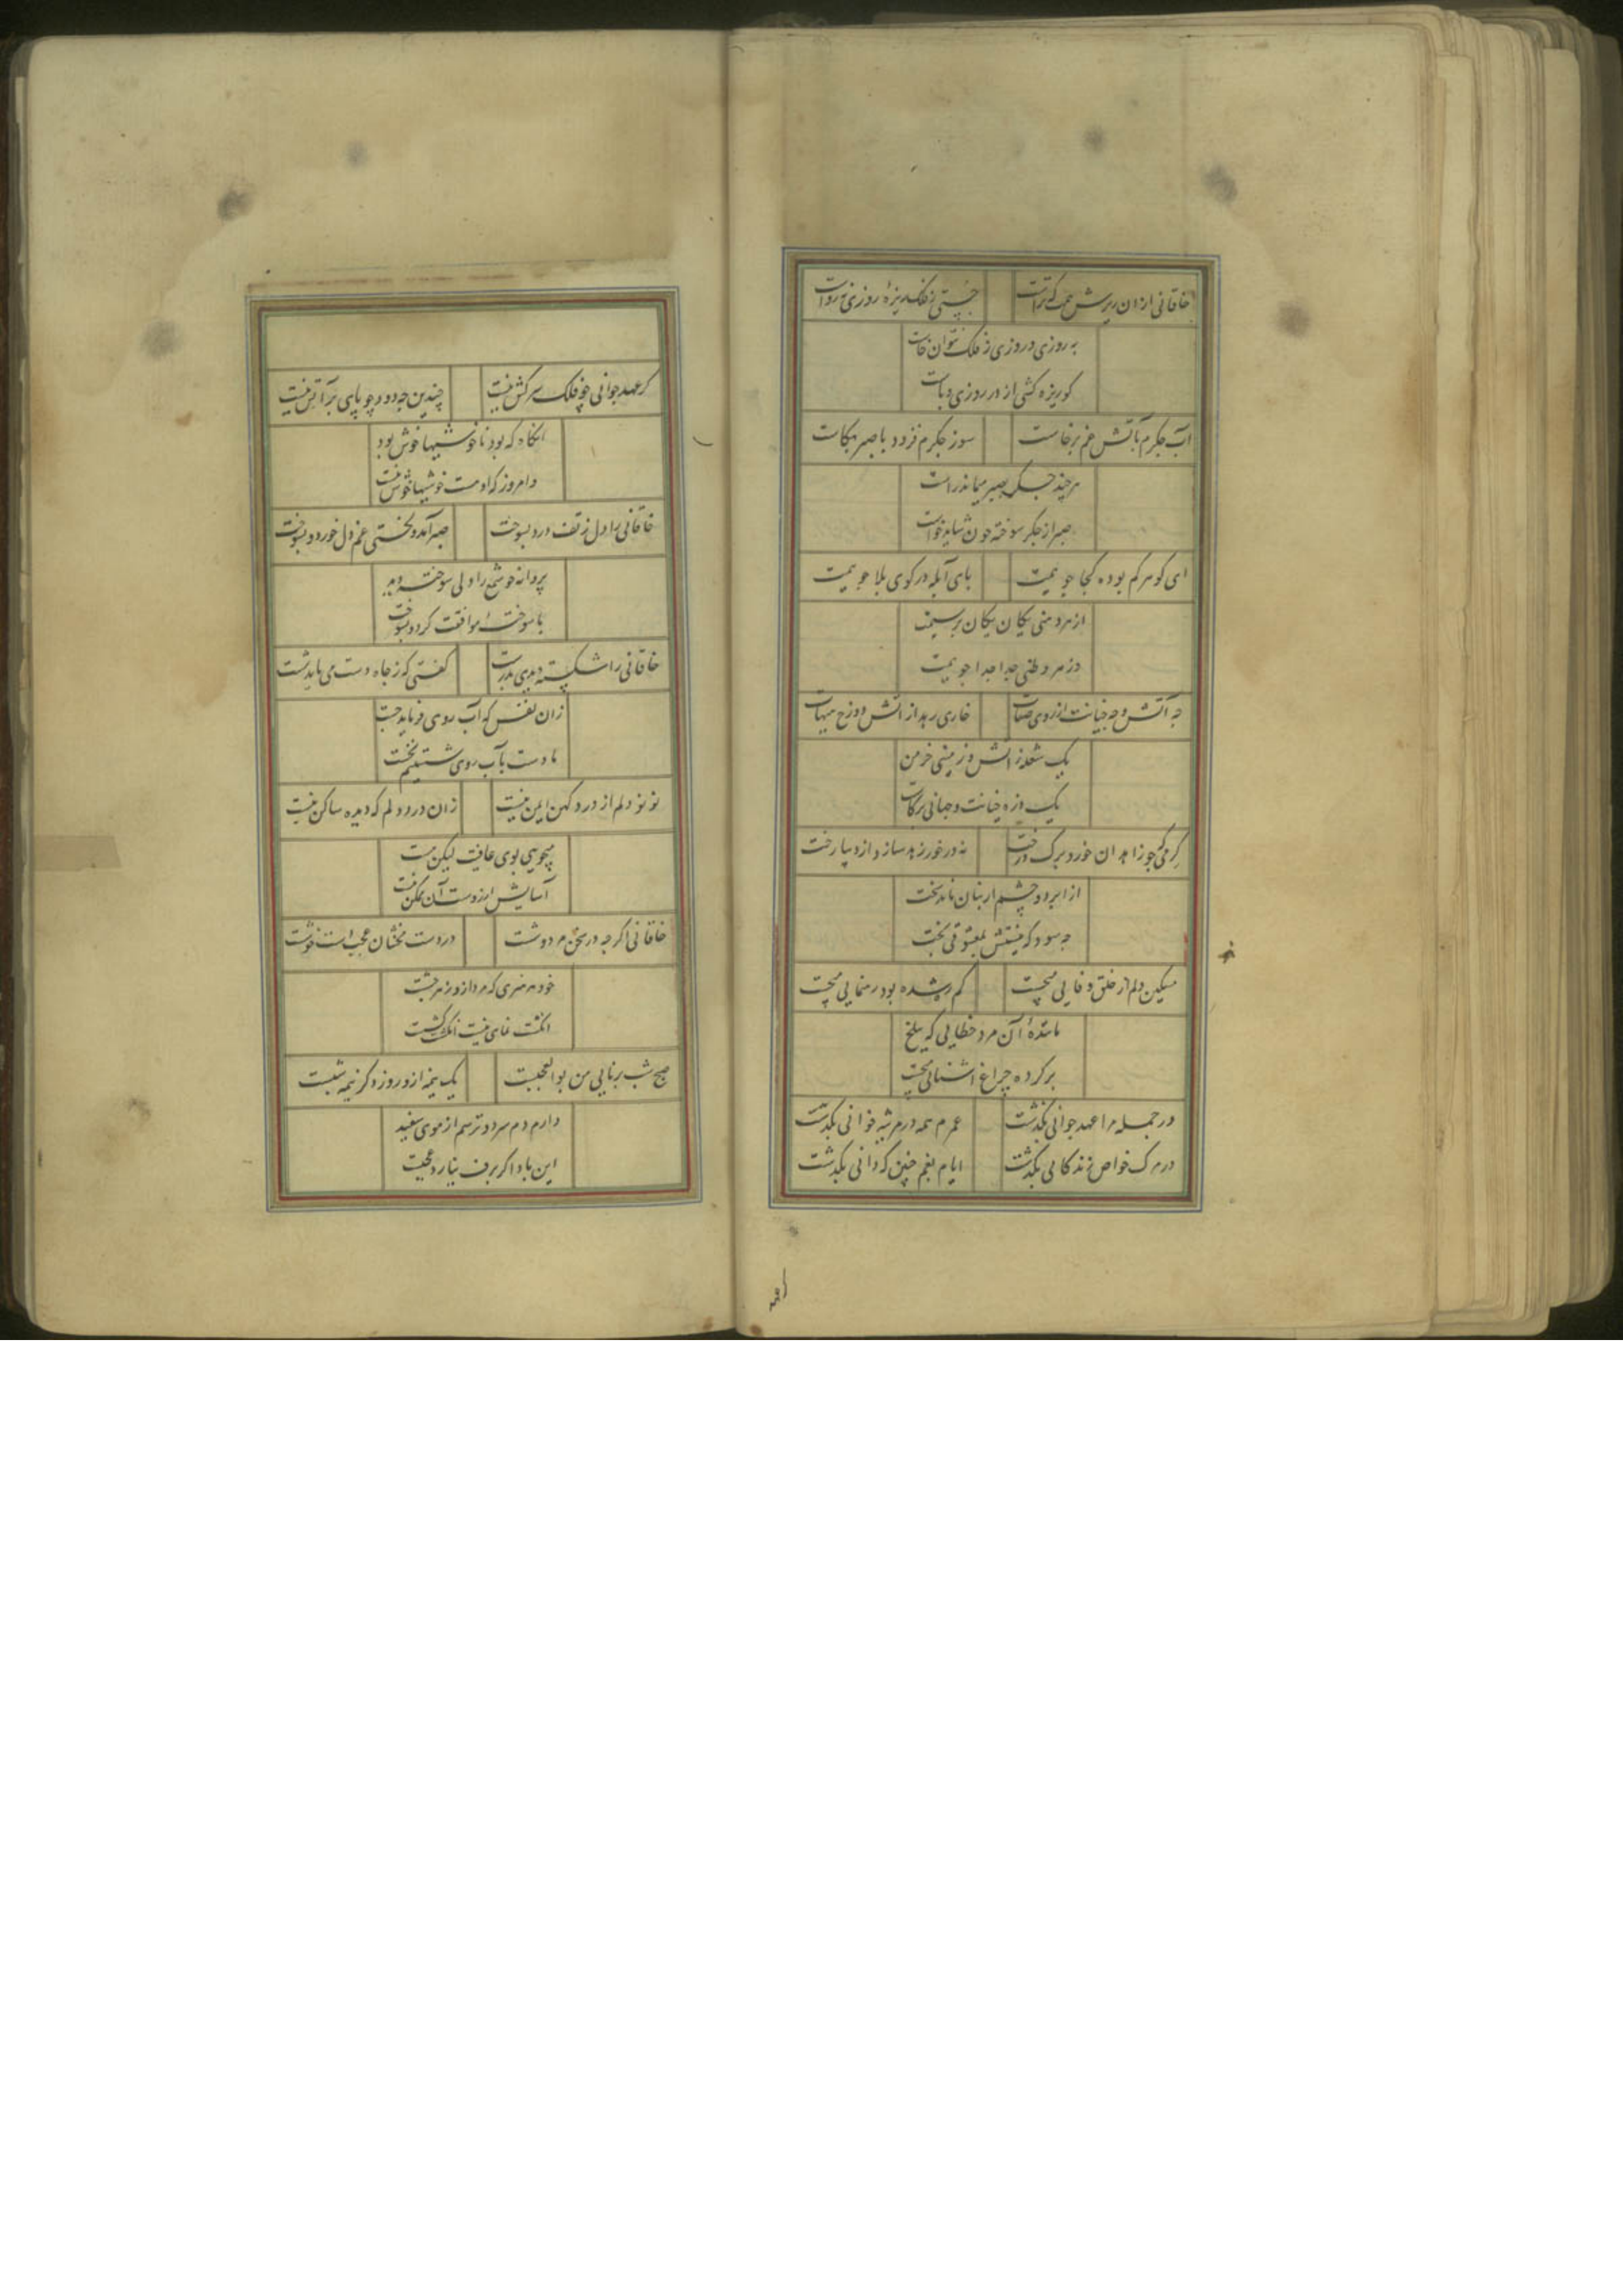 خاقانی ازان ریزش همت که تراست
جستن ز فلک ریزهٔ روزی نه رواست
به روزی در روزی ز فلک نتوان خاست
کو ریزه کشی از در روزی ده ماست
آب جگرم بآتش غم برخاست
سوز جگرم فزود با صبر بکاست
هر چند جگر بصبر میماند راست
صبر از جگر سوخته چون شاید خواست
ای گوهر گم بوده کجا جویمت
پای آبله در کوی بلا جویمت
از هر دهنی یکان یکان پرسیمت
در هر وطنی جدا جدا جویمت
چه آتش و چه خیانت از روی صفات
خاری رهد از آتش دوزخ هیهات
یک شعله ز آتش و زمینی خرمن
یک ذره خیانت و جهانی برکات
کرمی که چو زاهدان خورد برگ درخت
نه درخور زهد سازد از دیبا رخت
از ابرو و چشم ار بتان ماند سخت
چه سود که نیستش بمعشوقی بخت
مسکین دلم از خلق وفایی میجست
گم ره شده بود رهنمایی میجست
مانندهٔ آن مرد خطایی که ببلخ
برکرده چراغ آشنایی میجست
در جمله مرا عهد جوانی بگذشت
عمرم همه در مرثیه خوانی بگذشت
در مرگ خواص زندگانی بگذشت
ایام بغم چنین که دانی بگذشت
گر عهد جوانی چو فلک سرکش نیست
چندین چه دود چو پای بر آتش نیست
آنگاه که بود ناخوشیها خوش بود
و امروز که او هست خوشیها خوش نیست
خاقانی را دل ز تف درد بسوخت
صبر آمد و لختی غم دل خورد و بسوخت
پروانه چو شمع را دلی سوخته دید
با سوختهٔ موافقت کرد و بسوخت
خاقانی را شکسته دیدی بدرست
گفتی که ز جاه دست می باید شست
زان نفس که آب روی فرماید جست
ما دست بآب روی شستیم نخست
نو نو دلم از درد کهن ایمن نیست
زان درد دلم که دیده ساکن نیست
میجویم بوی عافیت لیکن نیست
آسایش ار زوست آن ممکن نیست
خاقانی اگرچه در سخن مرد وشست
در دست مخنثان عجب دستخوشست
خود هر هنری که مرد ازو زهر چشست
انگشت نمای نیست انگشت کشست
صبح شب برنایی من بوالعجبست
یک نیمه ازو روز و دگر نیمه شبست
دارم دم سرد و ترسم از موی سفید
این باد اگر برف نیارد عجبست
گر عهد